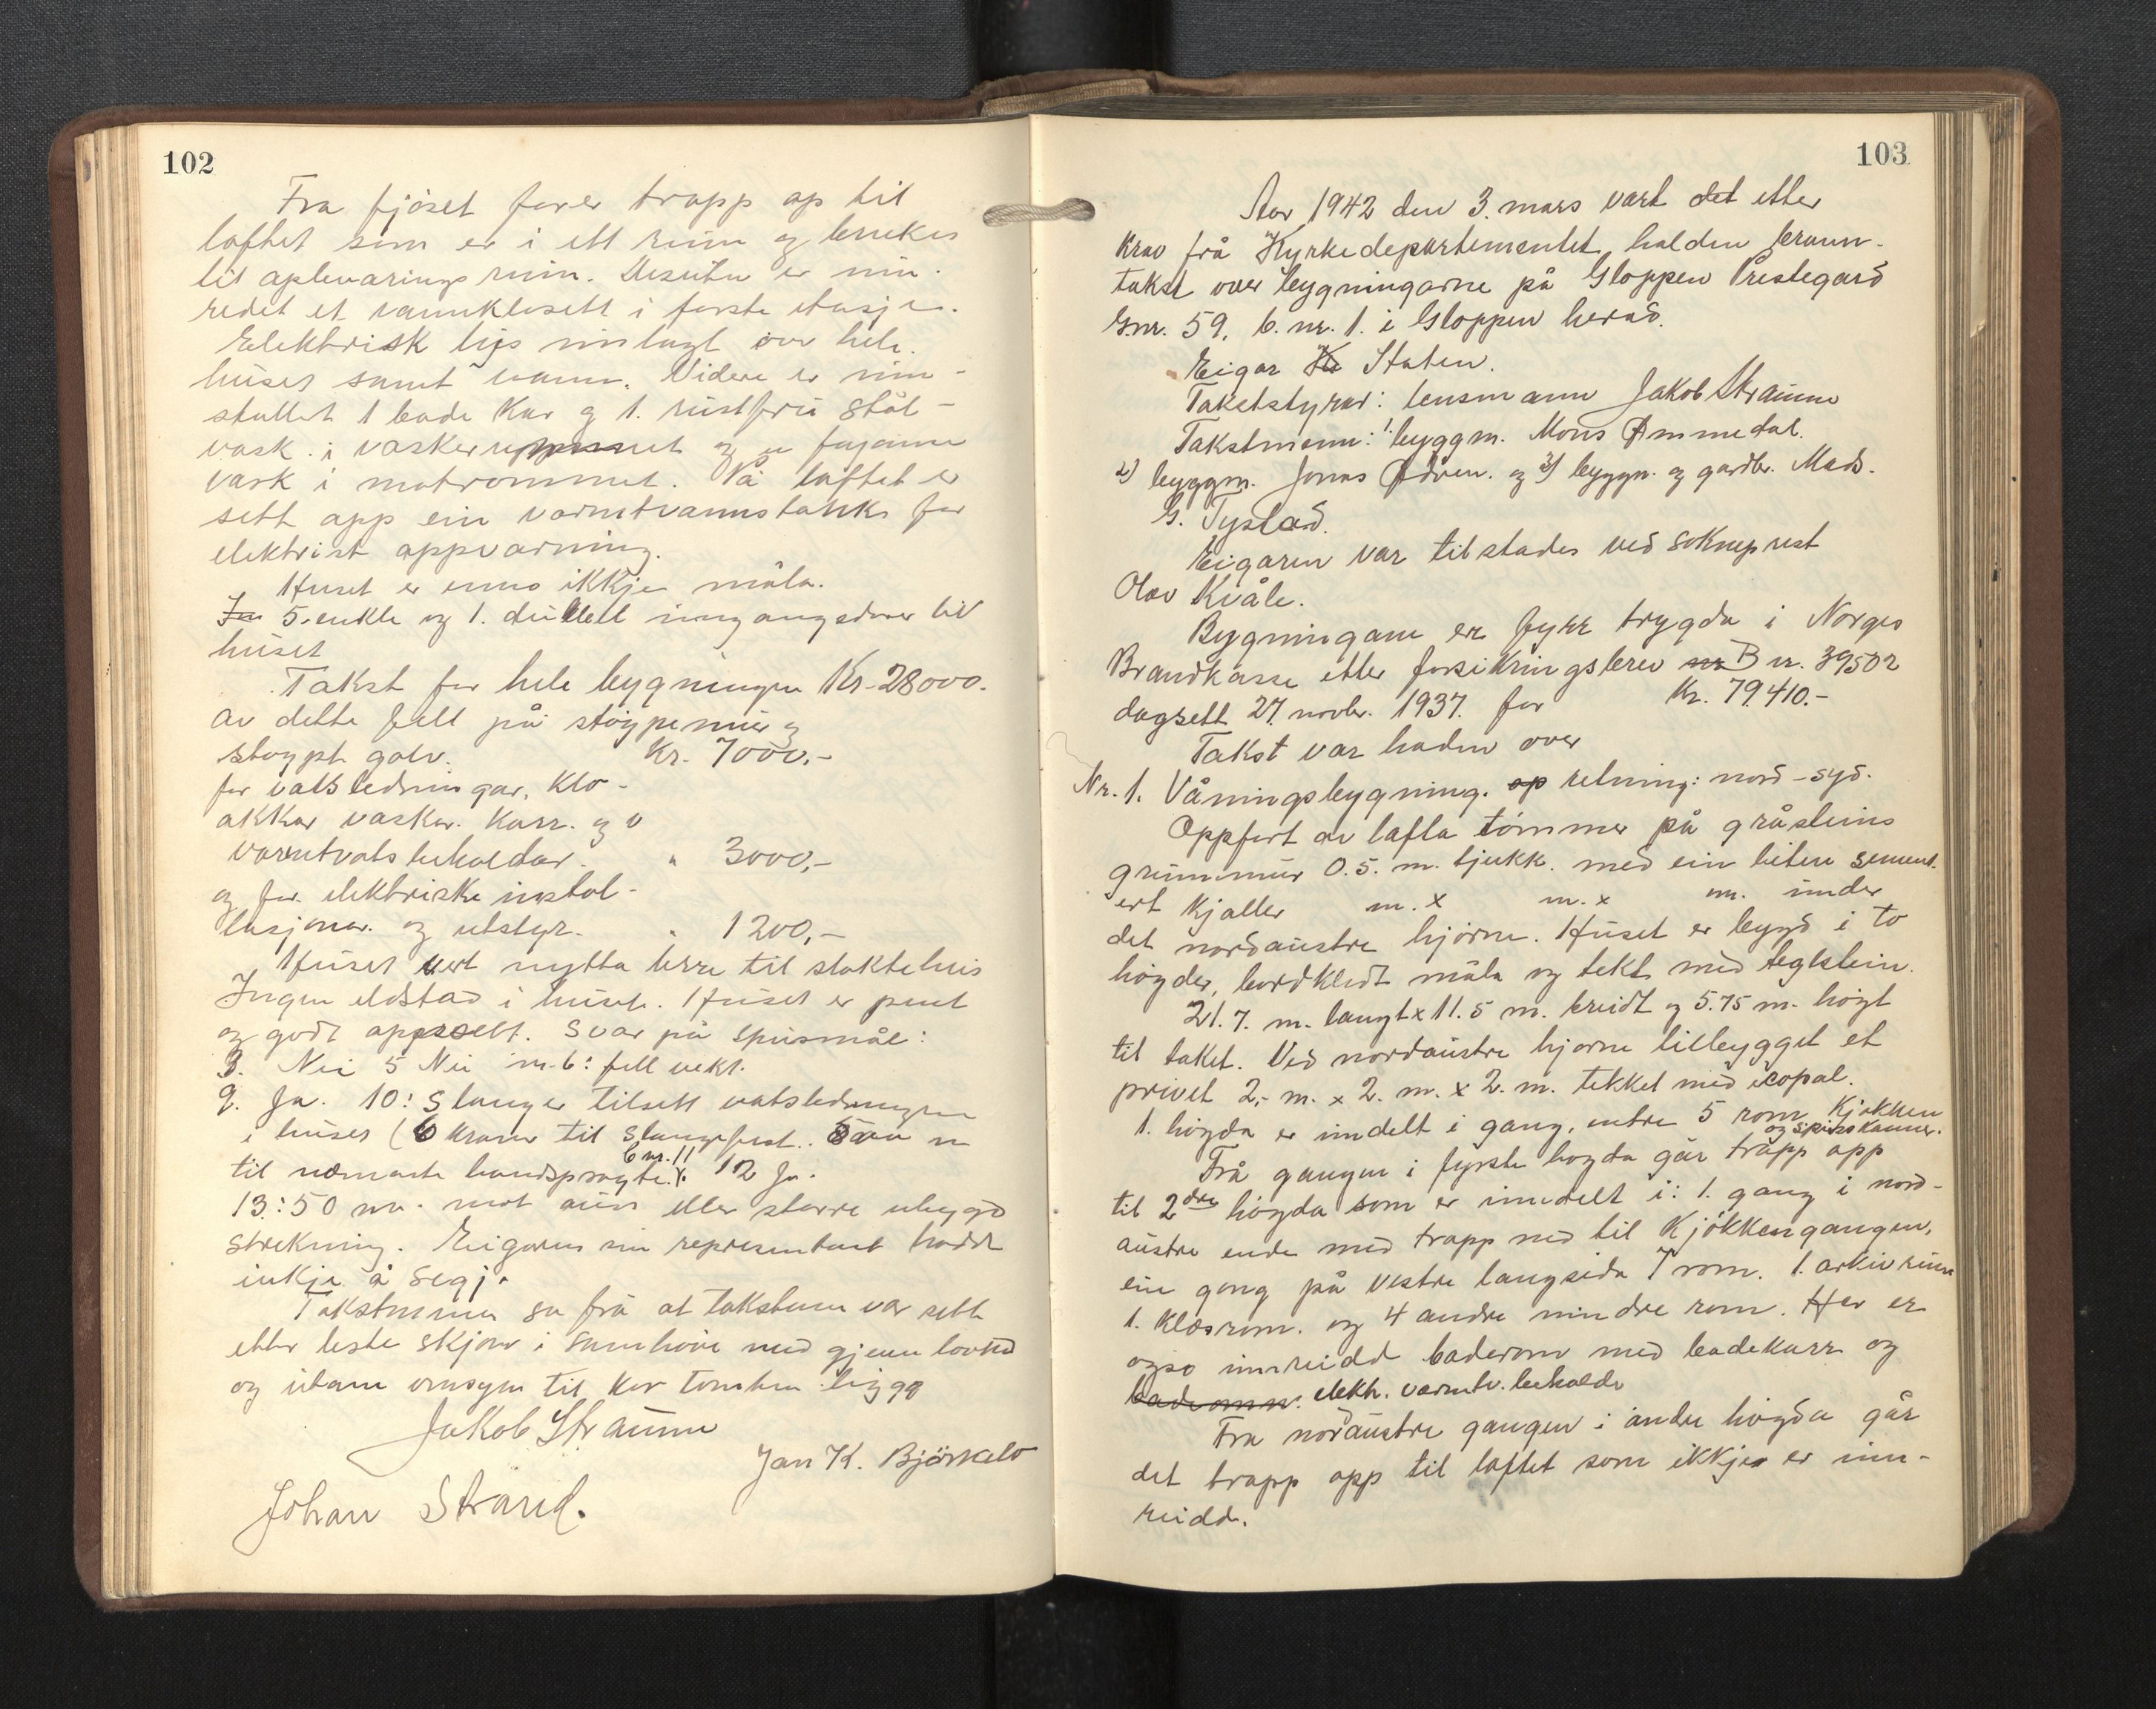 102
Fra fjöset förer trapp op til
loftet som er i ett rum og brukes
til oplevarings rum. Desutn er inn-
redet et vannklosett i förste etasje.
Elektrisk lys innlagt över hele
huset samt vann. Videre er inn-
stallert 1 bade Kar og 1. rustfrii stål-
vask i vaskerummet og en fajanse
vask i matrommet. På loftet er
sett opp ein varmtvannstank for
elektrisk oppvarming.
Huset er enno ikkje måla.
5. enkle og 1. dubbell inngangsdører til
huset
Takst for hele bygningen Kr. 28000.
Av dette fell på støypemur og
støypt golv. Kr. 7000,-
for vatsledningar, klo-
akkar vaskar. Karr. og
varmtvatsbehaldar. " 3000,-
og for elektriske instal-
lasjonar og utstyr. " 1200,-
Huset vert nytta berre til slaktehus
Ingen eldstad i huset. Huset er pent
og godt oppsett. Svar på spusmål:
3. Nei 5 Nei nr. 6: fell vekt.
9. Ja. 10: Slanger tilsett vatsledningen
i huset (6 kraner til slangefest. m
til næmaste handsprøyte. 6 nr. 11 12 Ja.
13: 50 m. mot aust eller större ubygd
strekning. Eigaren sin representant hadde
inkje å segj.
Takstmenn sa frå at takstene var sett
etter beste skjøn i samhøve med gjevne lovbod
og utann omsyn til kor tomten ligge
Jakob Straume
Jan K. Björkelo
Johan Strand.
103
Aar 1942 den 3. mars vart det etter
Krav frå Kyrkedepartementet halden brann-
takst over bygningarne på Gloppen Prestegard
Gnr. 59, b. nr. 1. i Gloppen herad.
Eigar Ky Staten.
Takststyrar: lensmann Jakob Straume
Takstmenn: 1. byggm. Mons Ommedal.
2) byggm. Jonas Ødven. og 3) byggn. og gardbr. Mads.
G. Tystad.
Eigaren var tilstades ved sokneprest
Olav Kvåle.
Bygningane er fyrr trygda i Norges
Brandkasse etter forsikringsbrev nr B nr. 39502
dagsett 27. novbr. 1937. for Kr. 79410.-
Takst var haden over
Nr. 1. Våningsbygning. op retning: nord-syd.
Oppført av lafta tömmer på gråsteins
grunnmur 0.5. m. tjukk. med ein liten sement-
ert kjaller m. x m. x m. under
det nordaustre hjörne. Huset er bygd i to
högder, bordkledt måla og tekt med teglstein.
21.7. m. langt x 11.5 m. breidt og 5.75 m. högt
til taket. Ved nordaustre hjorne tilbygget et
privet 2,- m. x 2. m. x 2. m. tekket med icopal.
1. högda er inndelt i gang, entre 5 rom, Kjøkken
og spiskammer.
Frå gangen i fyrste hogda går trapp opp
til 2dre högda som er inndelt i: 1. gang i nord-
austre ende med trapp ned til Kjökkengangen,
ein gong på vestre langside 7 rom. 1. arkivrum
1. Klæsrom. og 4 andre mindre rom. Her er
ogso innreidd baderom med badekarr og
badeomn. elekt. varmtv. behalde
Fra nordaustre gangen i andre högda går
det trapp opp til loftet som ikkje er inn-
reidd.